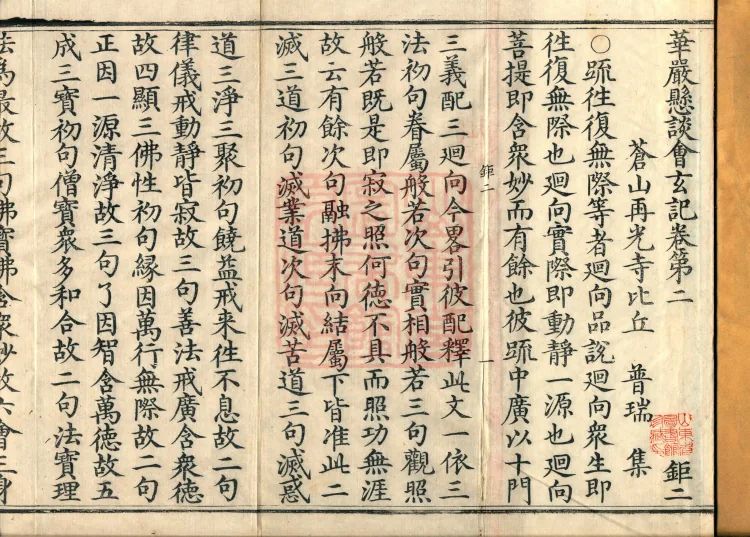 華嚴懸談會玄記卷第二 鉅二
蒼山再光寺比丘 普瑞 集
○䟽徃復無際等者廻向品說廻向衆生即
徃復無際也廻向實際即動靜一源也廻向
菩提即含衆妙而有餘也彼䟽中廣以十門
鉅二 一
三義配三廻向今畧引彼配釋此文一依三
法初句眷屬般若次句實相般若三句觀照
般若既是即寂之照何德不具而照功無涯
故云有餘次句融拂末向結屬下皆准此二
滅三道初句滅業道次句滅苦道三句滅惑
道三淨三聚初句饒益戒来徃不息故二句
律儀戒動靜皆寂故三句善法戒廣含衆德
故四顯三佛性初句緣因萬行無際故二句
正因一源清淨故三句了因智含萬德故五
成三寶初句僧寶衆多和合故二句法寶理
法爲最故三句佛寶佛含衆妙故六會三身